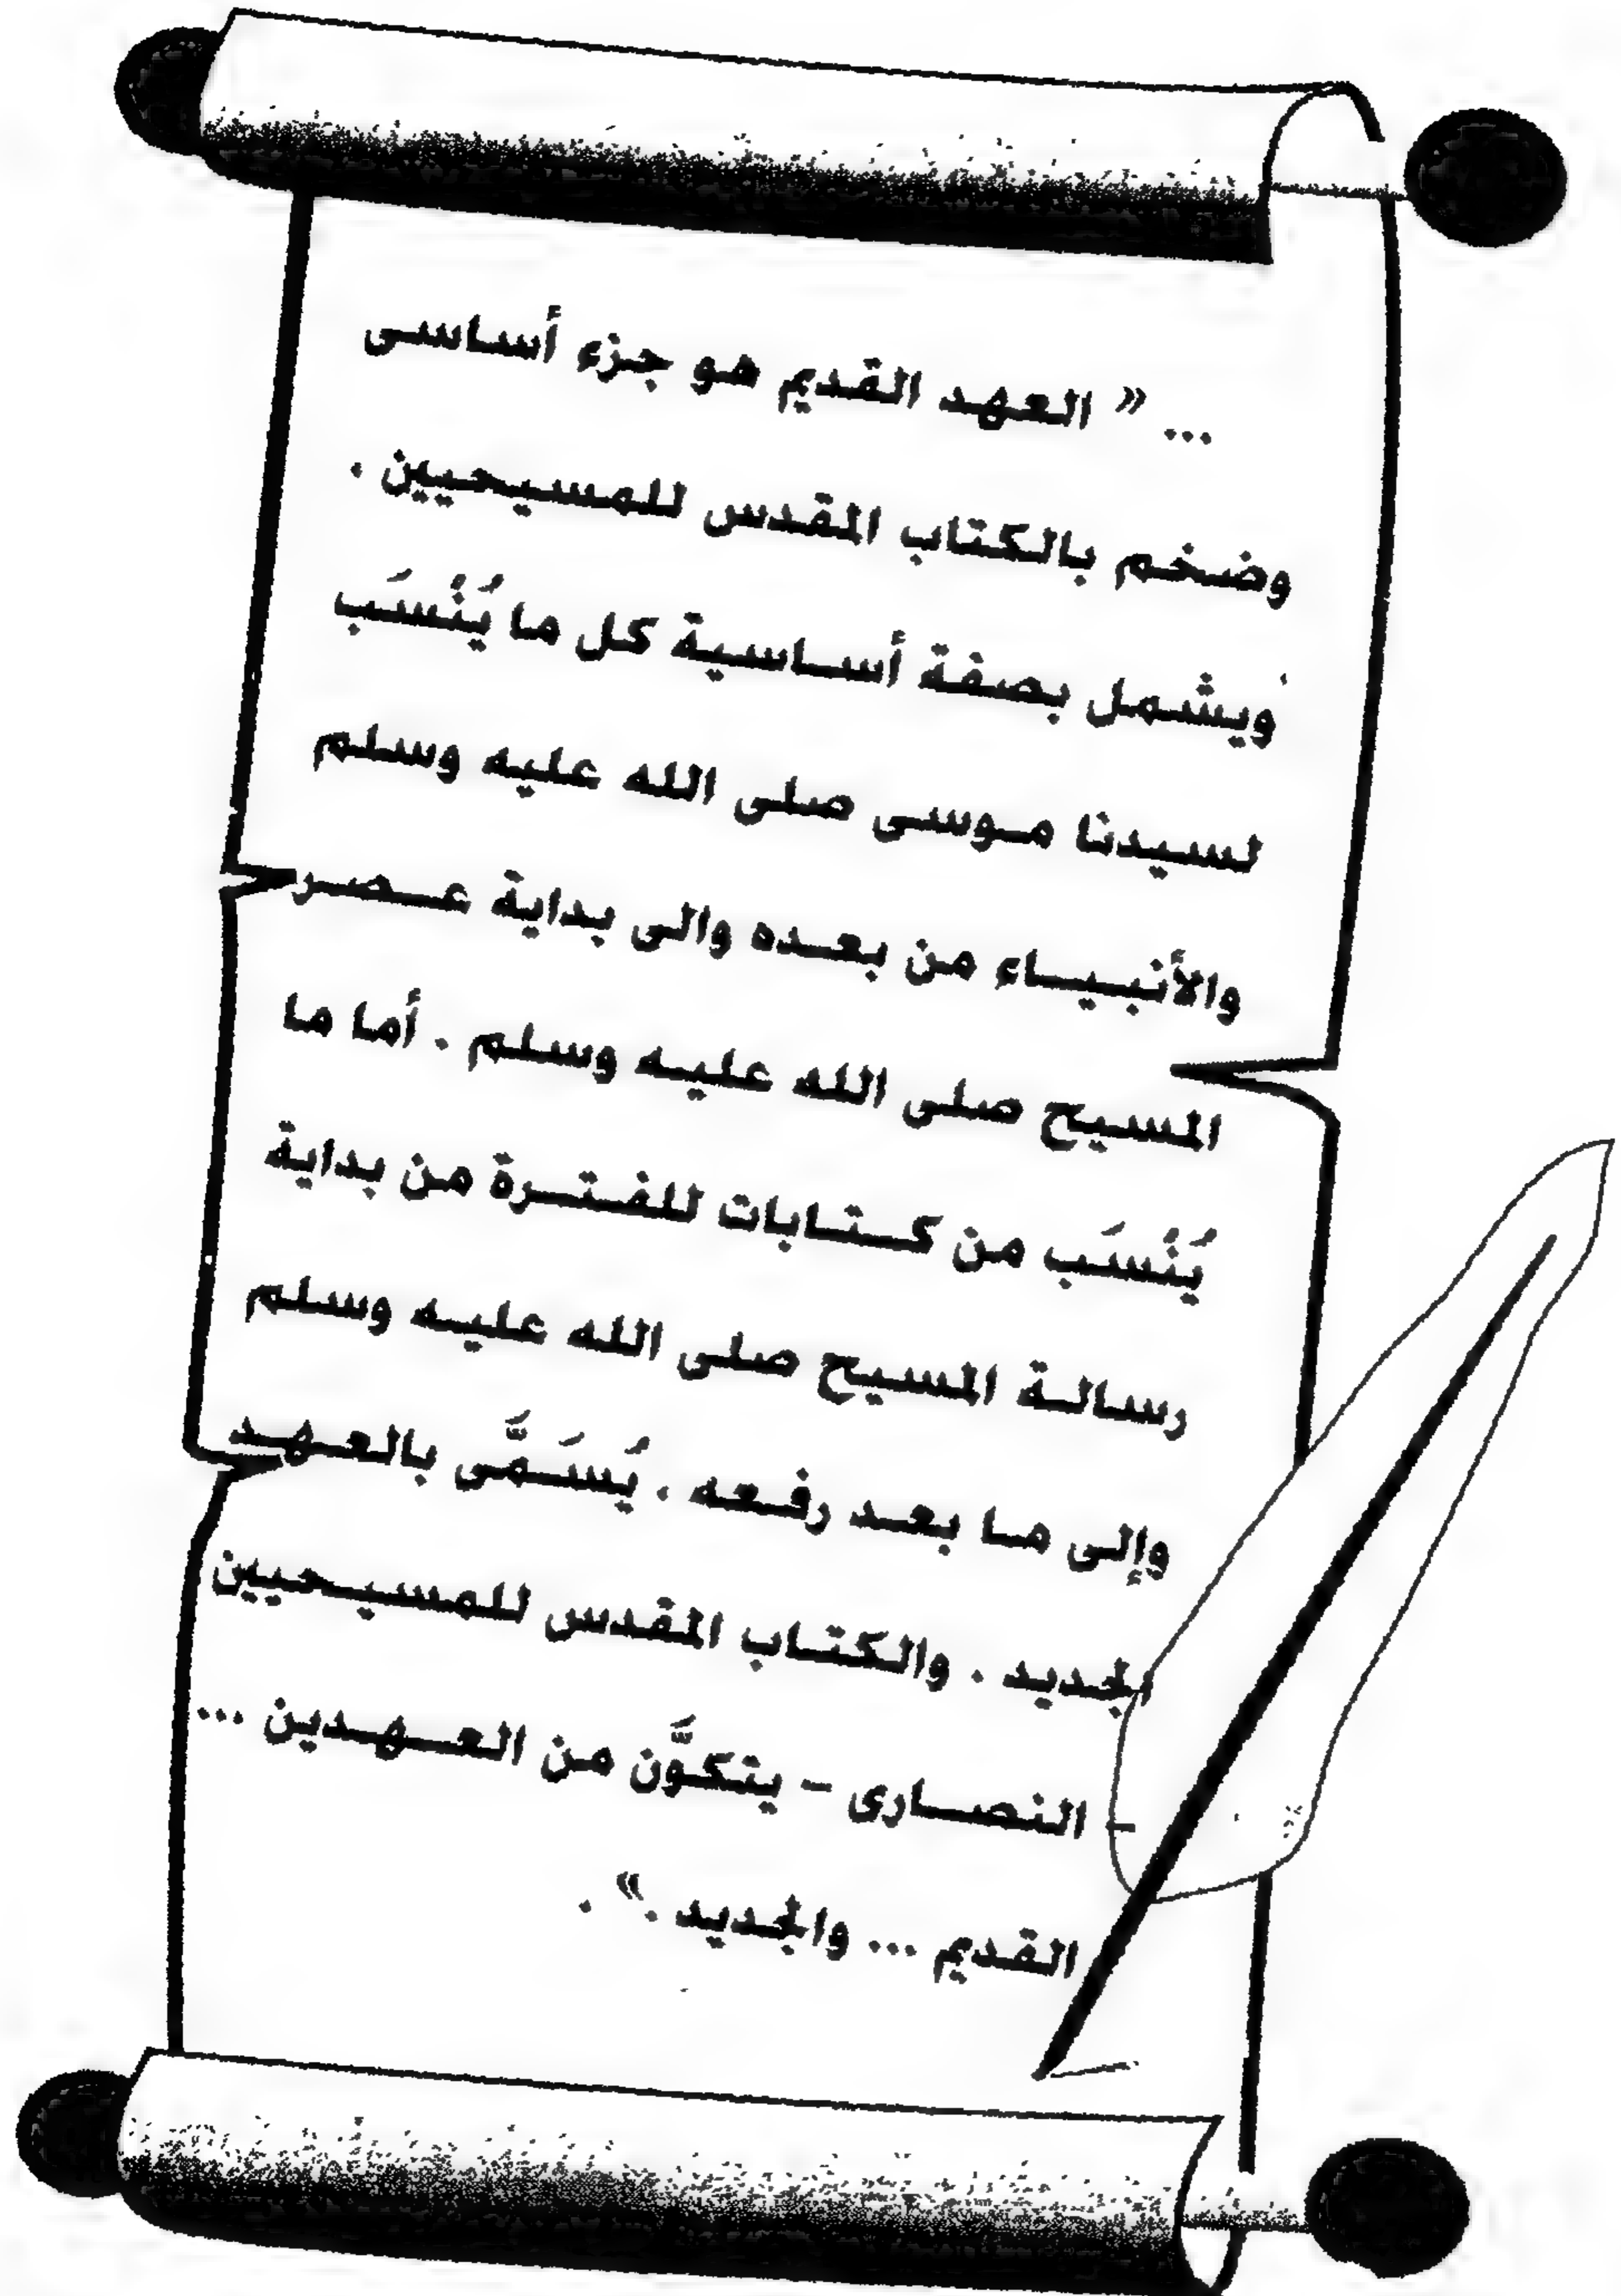 ... « العهد القديم هو جزء أساسى
وضخم بالكتاب المقدس للمسيحيين .
ويشمل بصفة أساسية كل ما يُنْسَب
لسيدنا موسى صلى الله عليه وسلم
والأنبياء من بعده والى بداية عصر
المسيح صلى الله عليه وسلم . أما ما
يُنْسَب من كتابات للفترة من بداية
رسالة المسيح صلى الله عليه وسلم
وإلى ما بعد رفعه . يُسَمَّى بالعهد
الجديد . والكتاب المقدس للمسيحيين
- النصارى - يتكوَّن من العهدين ...
القديم ... والجديد .» .